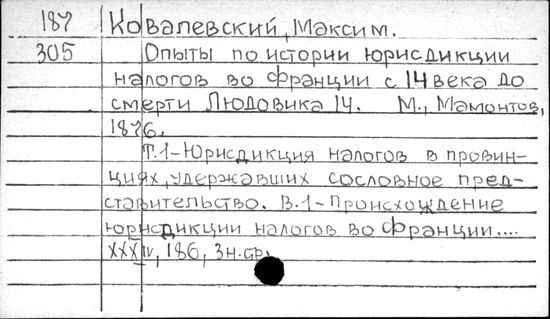 187 Ковалевский, Максим.
305 Опыты по истории юрисдикции
налогов во Франции с 14 века до
смерти Людовика 14. М., Мамонтов,
1876.
Т.1-Юрисдикция налогов в провин-
циях, удержавших сословное пред-
ставительство. В.1-Происхождение
юрисдикции налогов во Франции....
XXXIV, 186, 3н.ср.